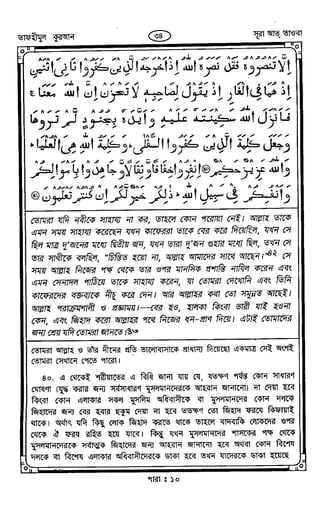 তাফহীমুল কুরআন
৩৪
সূরা আত্ তাওবা
اِلَّا تَنْصُرُوْهُ فَقَدْ نَصَرَهُ اللّٰهُ اِذْ اَخْرَجَهُ الَّذِيْنَ كَفَرُوْا ثَانِيَ اثْنَيْنِ
اِذْ هُمَا فِي الْغَارِ اِذْ يَقُوْلُ لِصَاحِبِهٖ لَا تَحْزَنْ اِنَّ اللّٰهَ مَعَنَا ۚ
فَاَنْزَلَ اللّٰهُ سَكِيْنَتَهٗ عَلَيْهِ وَاَيَّدَهٗ بِجُنُوْدٍ لَّمْ تَرَوْهَا
وَجَعَلَ كَلِمَةَ الَّذِيْنَ كَفَرُوا السُّفْلٰى ۗ وَكَلِمَةُ اللّٰهِ هِيَ الْعُلْيَا ۗ
وَاللّٰهُ عَزِيْزٌ حَكِيْمٌ ۝ اِنْفِرُوْا خِفَافًا وَّثِقَالًا وَّجَاهِدُوْا بِاَمْوَالِكُمْ
وَاَنْفُسِكُمْ فِيْ سَبِيْلِ اللّٰهِ ۗ ذٰلِكُمْ خَيْرٌ لَّكُمْ اِنْ كُنْتُمْ تَعْلَمُوْنَ ۝
তোমরা যদি নবীকে সাহায্য না কর, তাহলে কোন পরোয়া নেই। আল্লাহ তাকে
এমন সময় সাহায্য করেছেন যখন কাফেররা তাকে বের করে দিয়েছিল, যখন সে
ছিল মাত্র দু'জনের মধ্যে দ্বিতীয় জন, যখন তারা দু'জন গুহার মধ্যে ছিল, তখন সে
তার সাথীকে বলছিল, "চিন্তিত হয়ো না, আল্লাহ আমাদের সাথে আছেন।"৪২ সে
সময় আল্লাহ নিজের পক্ষ থেকে তার ওপর মানসিক প্রশান্তি নাযিল করেন এবং
এমন সেনাদল পাঠিয়ে তাকে সাহায্য করেন, যা তোমরা দেখোনি এবং তিনি
কাফেরদের বক্তব্যকে নীচু করে দেন। আর আল্লাহর কথা তো সমুন্নত আছেই।
আল্লাহ পরাক্রমশালী ও প্রজ্ঞাময়।—বের হও, হালকা কিংবা ভারী যাই হওনা
কেন, এবং জিহাদ করো আল্লাহর পথে নিজের ধন-প্রাণ দিয়ে। এটাই তোমাদের
জন্য শ্রেয় যদি তোমরা জানতে।৪৩
তোমরা আল্লাহ ও তাঁর দীনের প্রতি ভালোবাসাকে প্রাধান্য দিয়েছো একমাত্র সেই অংশই
তোমরা সেখানে পেতে পারো।
৪০. এ থেকেই শরীয়াতের এ বিধি জানা যায় যে, যতক্ষণ পর্যন্ত কোন সাধারণ
ঘোষণা (যুদ্ধ করার জন্য সর্বসাধারণ মুসলমানদেরকে আহবান জানানো) না দেয়া হবে
কিংবা কোন এলাকার সকল মুসলিম অধিবাসীকে বা মুসলমানদের কোন দলকে
জিহাদের জন্য বের হবার হুকুম দেয়া না হবে ততক্ষণ তো জিহাদ ফরযে কিফায়াই
থাকে। অর্থাৎ যদি কিছু লোক জিহাদ করতে থাকে তাহলে বাদবাকি লোকদের ওপর
থেকে ঐ ফরয রহিত হয়ে যাবে। কিন্তু যখন মুসলমানদের শাসকের পক্ষ থেকে
মুসলমানদেরকে সর্বাত্মক জিহাদের জন্য আহবান জানানো হবে অথবা কোন বিশেষ
দলকে বা বিশেষ এলাকার অধিবাসীদেরকে ডাকা হবে তখন যাদেরকে ডাকা হয়েছে
পারা : ১০